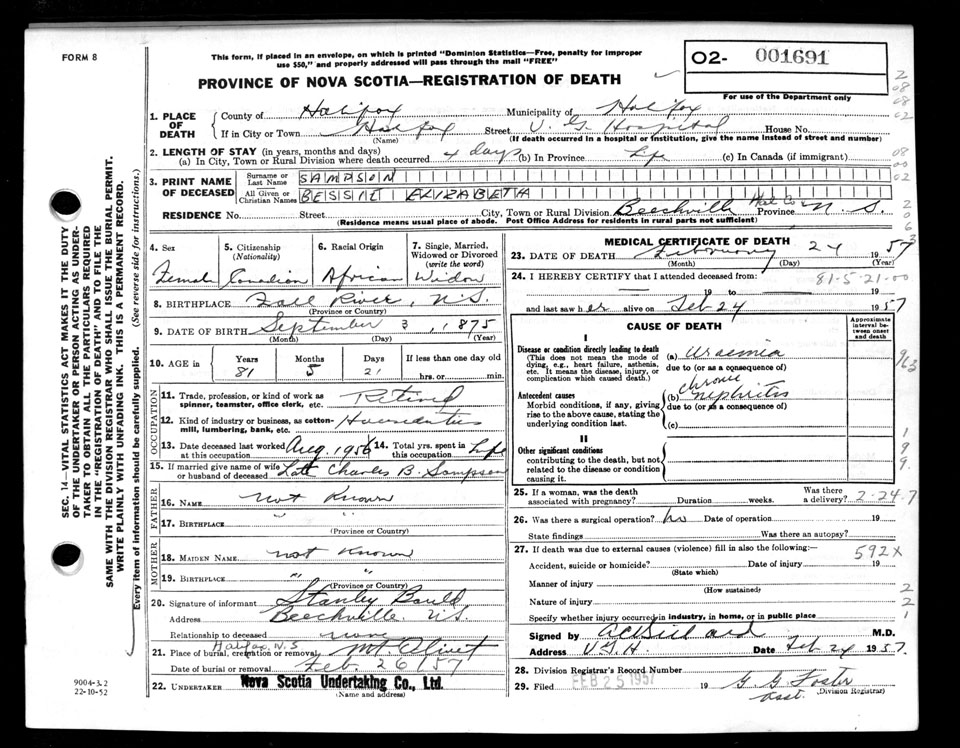 FORM 8
This form, if placed in an envelope, on which is printed "Dominion Statistics—Free, penalty for improper
use $50," and properly addressed will pass through the mail "FREE"
O2- 001691
PROVINCE OF NOVA SCOTIA—REGISTRATION OF DEATH
For use of the Department only
1. PLACE OF DEATH
County of Halifax Municipality of Halifax
If in City or Town Halifax Street V. G. Hospital House No.
(Name) (If death occurred in a hospital or institution, give the name instead of street and number)
2. LENGTH OF STAY (in years, months and days)
(a) In City, Town or Rural Division where death occurred 4 days (b) In Province Life (c) In Canada (if immigrant)
3. PRINT NAME OF DECEASED
Surname or Last Name SAMPSON
All Given or Christian Names BESSIE ELIZABETH
RESIDENCE No. Street City, Town or Rural Division Beechville Hal Co Province N. S.
(Residence means usual place of abode. Post Office Address for residents in rural parts not sufficient)
4. Sex 5. Citizenship 6. Racial Origin 7. Single, Married, Widowed or Divorced
(Nationality) (write the word)
Female Canadian African Widow
8. BIRTHPLACE Fall River, N.S.
(Province or Country)
9. DATE OF BIRTH September 3, 1875
(Month) (Day) (Year)
10. AGE in Years Months Days If less than one day old
81 5 21 hrs. or min.
OCCUPATION
11. Trade, profession or kind of work as spinner, teamster, office clerk, etc. Retired
12. Kind of industry or business, as cotton-mill, lumbering, bank, etc.
13. Date deceased last worked at this occupation Aug. 1956 14. Total yrs. spent in this occupation Life
15. If married give name of wife or husband of deceased Late Charles B. Sampson
FATHER
16. NAME not Known
17. BIRTHPLACE " "
(Province or Country)
MOTHER
18. MAIDEN NAME not Known
19. BIRTHPLACE " "
(Province or Country)
20. Signature of informant Stanley Bauld
Address Beechville N.S.
Relationship to deceased none
21. Place of burial, cremation or removal Halifax, N.S Mt Olivet
Date of burial or removal Feb. 26/57
22. UNDERTAKER Nova Scotia Undertaking Co., Ltd.
(Name and address)
MEDICAL CERTIFICATE OF DEATH
23. DATE OF DEATH February 24 1957
(Month) (Day) (Year)
24. I HEREBY CERTIFY that I attended deceased from: 81-5-21-00
19 to 19
and last saw her alive on Feb 24 1957
CAUSE OF DEATH
Approximate interval between onset and death
I
Disease or condition directly leading to death (a) Uraemia
(This does not mean the mode of dying, e.g., heart failure, asthenia, etc. It means the disease, injury, or complication which caused death.)
due to (or as a consequence of)
Antecedent causes (b) chronic nephritis
Morbid conditions, if any, giving rise to the above cause, stating the underlying condition last.
due to (or as a consequence of)
(c)
II
Other significant conditions
contributing to the death, but not related to the disease or condition causing it.
25. If a woman, was the death associated with pregnancy? Duration weeks. Was there a delivery? 2-24-7
26. Was there a surgical operation? no Date of operation 19
State findings Was there an autopsy?
27. If death was due to external causes (violence) fill in also the following:— 592X
Accident, suicide or homicide? Date of injury 19
(State which)
Manner of injury
(How sustained)
Nature of injury
Specify whether injury occurred in industry, in home, or in public place
Signed by M.D.
Address V.G.H. Date Feb 24 1957.
28. Division Registrar's Record Number
29. Filed FEB 25 1957 19 G. G. Foster
asst. (Division Registrar)
SEC. 14—VITAL STATISTICS ACT MAKES IT THE DUTY
OF THE UNDERTAKER OR PERSON ACTING AS UNDER-
TAKER TO OBTAIN ALL THE PARTICULARS REQUIRED
IN THE "REGISTRATION OF DEATH" AND TO FILE THE
SAME WITH THE DIVISION REGISTRAR WHO SHALL ISSUE THE BURIAL PERMIT.
WRITE PLAINLY WITH UNFADING INK. THIS IS A PERMANENT RECORD.
Every item of information should be carefully supplied. (See reverse side for instructions.)
9004-3.2
22-10-52